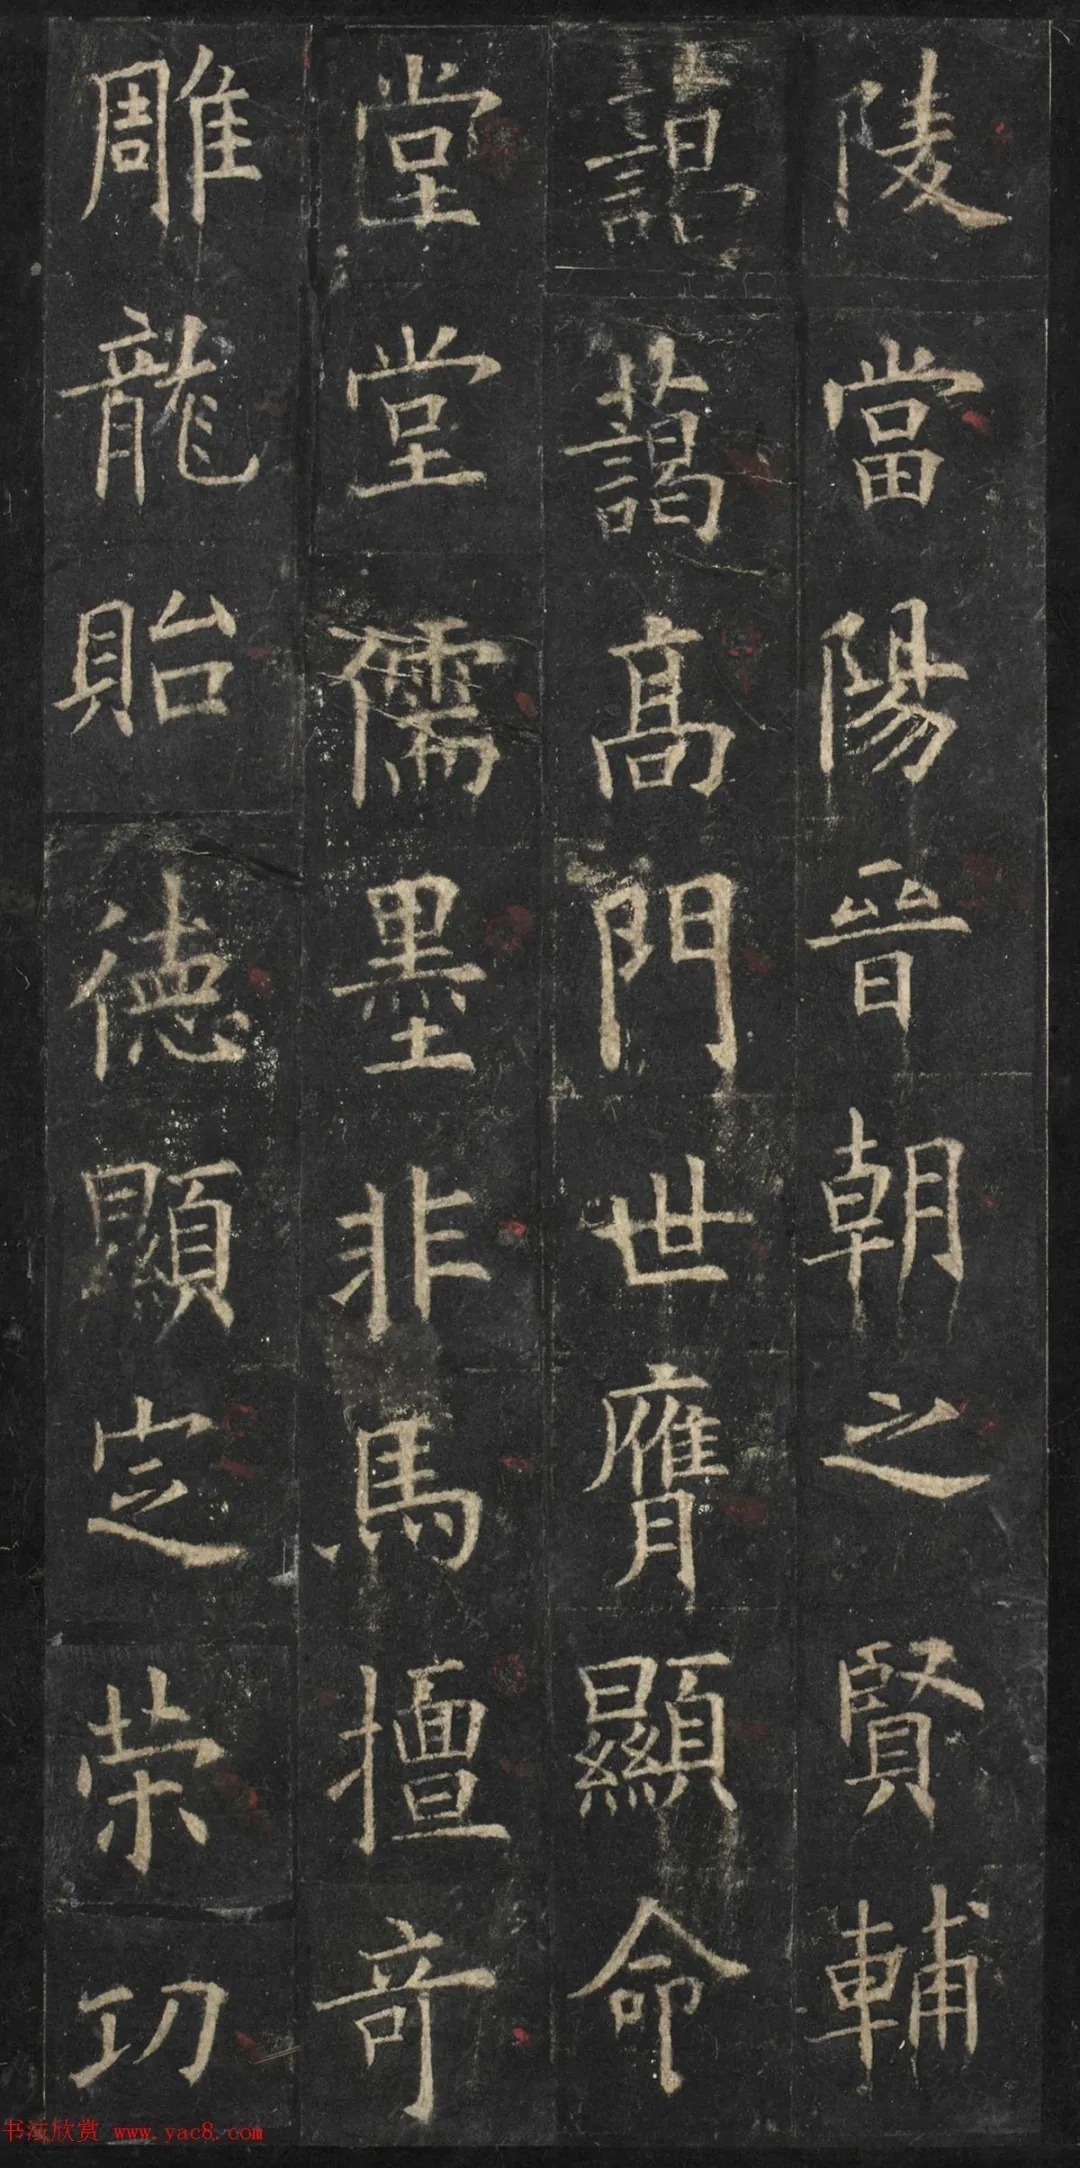 陵當陽晉朝之賢輔
藹藹高門世膺顯命
堂堂儒墨非馬擅奇
雕龍貽德顯定榮功
书法欣赏 www.yac8.com